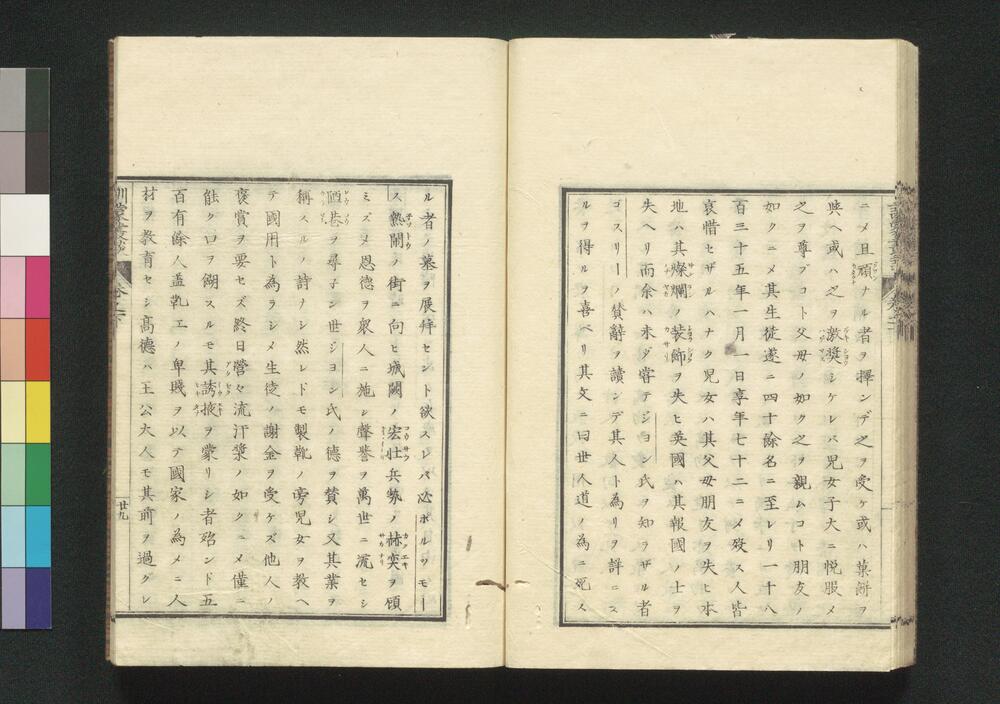 ニシテ且頑ナル者ヲ擇ンデ之ヲ受ケ或ハ菓餅ヲ
與ヘ或ハ之ヲ激奨シケレバ児女子大ニ悦服メ
之ヲ尊ブコト父母ノ如ク之ヲ親ムコト朋友ノ
如クニメ其生徒遂ニ四十餘名ニ至レリ一千八
百三十五年一月一日享年七十二ニメ歿ス人皆
哀惜セザルハナク児女ハ其父母朋友ヲ失ヒ本
地ハ其燦爛ノ装飾ヲ失ヒ英國ハ其報國ノ士ヲ
失ヘリ而余ハ未ダ嘗テジヨン氏ヲ知ラザル者
ゴスリーノ賛辭ヲ讀ンデ其人ト為リヲ詳ニス
ルヲ得ルヲ喜ベリ其文ニ曰世人道ノ為ニ死ス
ル者ノ墓ヲ展拜セント欲スレバ必ポルツモー
ス熱鬧ノ街ニ向ヒ城闕ノ宏壮兵勢ノ赫奕ヲ顧
ミズメ恩德ヲ衆人ニ施シ聲譽ヲ萬世ニ流セシ
陋巷ヲ尋子ン世ジヨン氏ノ德ヲ賛シ又其業ヲ
稱スルノ詩ナシ然レドモ製靴ノ旁児女ヲ教ヘ
テ國用ト為ラシメ生徒ノ謝金ヲ受ケズ他人ノ
褒賞ヲ要セズ終日營々流汗漿ノ如クニメ僅ニ
能ク口ヲ餬スルモ其誘掖ヲ蒙リシ者殆ンド五
百有餘人盖靴工ノ卑賤ヲ以テ國家ノ為メニ人
材ヲ教育セシ高德ハ王公大人モ其前ヲ過グレ
廿九